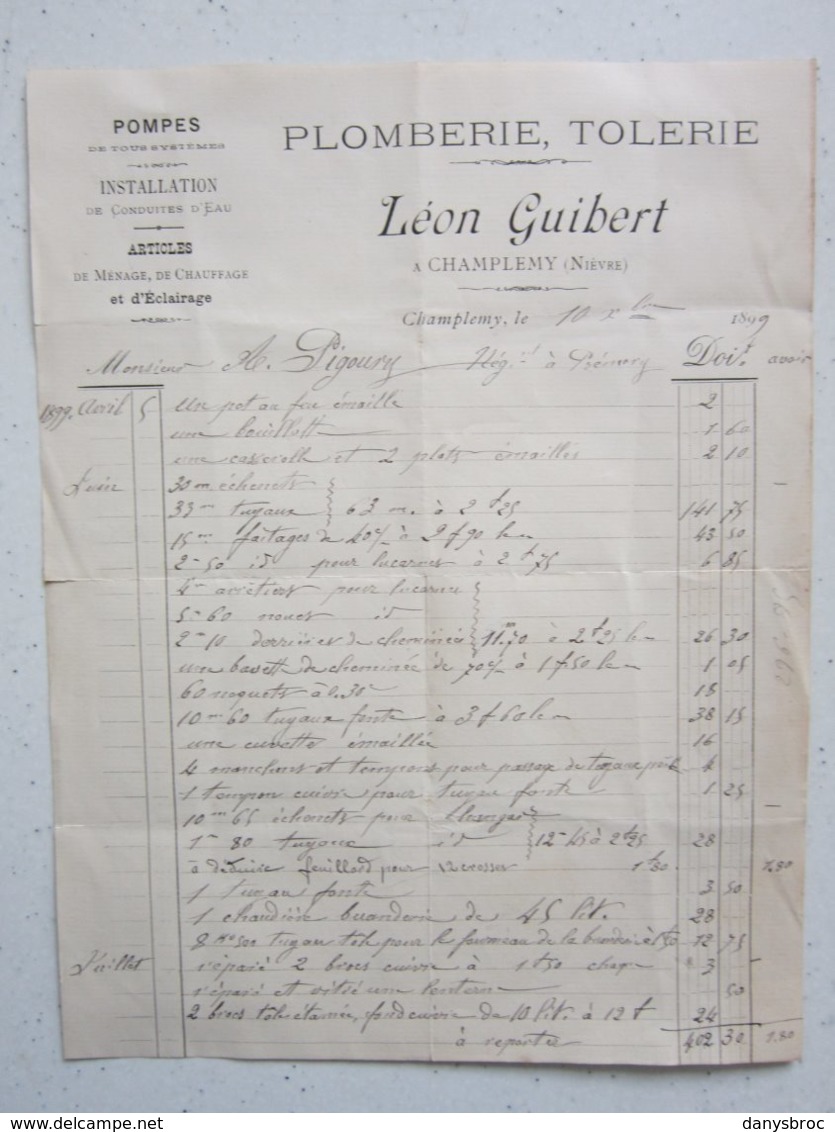 POMPES
DE TOUS SYSTÈMES
INSTALLATION
DE CONDUITES D'EAU
ARTICLES
DE MÉNAGE, DE CHAUFFAGE
et d'Éclairage
PLOMBERIE, TOLERIE
Léon Guibert
A CHAMPLEMY (NIÈVRE)
Champlemy, le 10 xbre 1899
Monsieur A. Pigoury Nég.t à Prémery Doit avoir
1899. Avril 5 un pot au feu émaillé 2
une bouillotte 1 60
une casserolle et 2 plats émaillés 2 10
Juin 30 m échenets
33 m tuyaux 63 m. à 2 f 25 141 75
15 m faitages de 40 % à 2 f 90 le m 43 50
2 m 50 id pour lucarnes à 2 f 75 6 85
4 m arêtiers pour lucarne
5 m 60 noues id
2 m 10 derrières de cheminées 11 m 70 à 2 f 25 le m 26 30
une bavette de cheminée de 70 % à 1 f 50 le m 1 05
60 noquets à 0.30 18
10 m 60 tuyaux fonte à 3 f 60 le m 38 15
une cuvette émaillée 16
4 manchons et tampons pour passage de tuyaux 4
1 tampon cuivre pour tuyau fonte 1 25
10 m 65 échenets pour hangar
1 m 80 tuyaux id 12 m 45 à 2 f 25 28
à déduire feuillard pour 12 crosses 1 f 80 1.80
1 tuyau fonte 3 50
1 chaudière buanderie de 45 lit. 28
8 Ko 500 tuyau tole pour le fourneau de la buanderie à 1 f 50 12 75
Juillet réparé 2 brocs cuivre à 1 f 50 chaque 3
réparé et vitré une lanterne 50
2 brocs tole étamée, fond cuivre de 10 lit. à 12 f 24
à reporter 402 30 1.80
delcampe.net
danysbroc